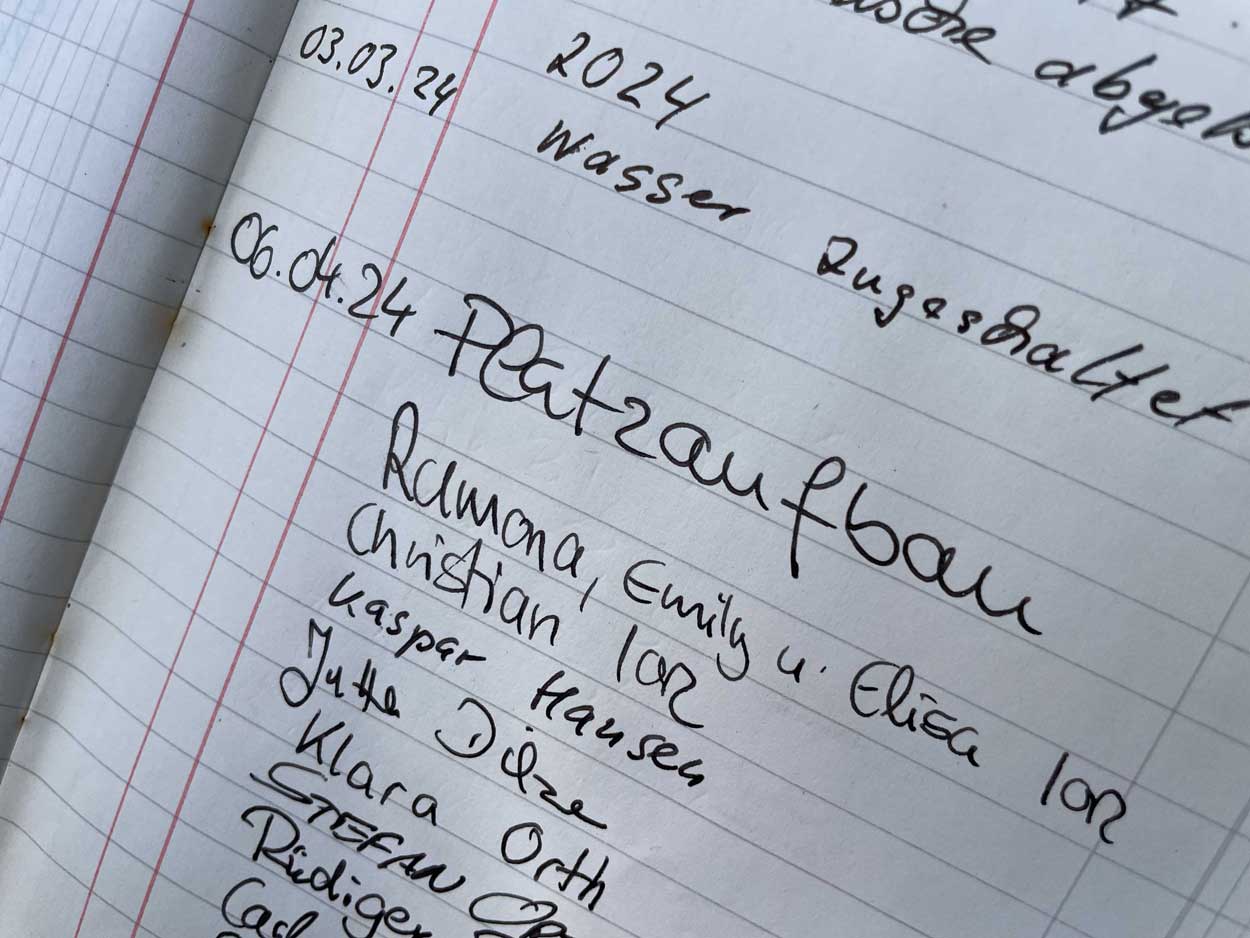 abgel
03.03.24 2024
Wasser zugeschaltet
06.04.24 Platzaufbau
Ramona, Emily u. Elisa
Christian
Kaspar Hansen
Jutta
Klara Orth
STEFAN
Rüdiger